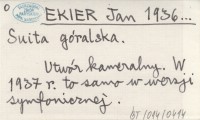 0 EKIER Jan 1936...
Suita góralska.
Utwór kameralny. W
1937 r. to samo w wersji
symfonicznej.
BT/014/0414